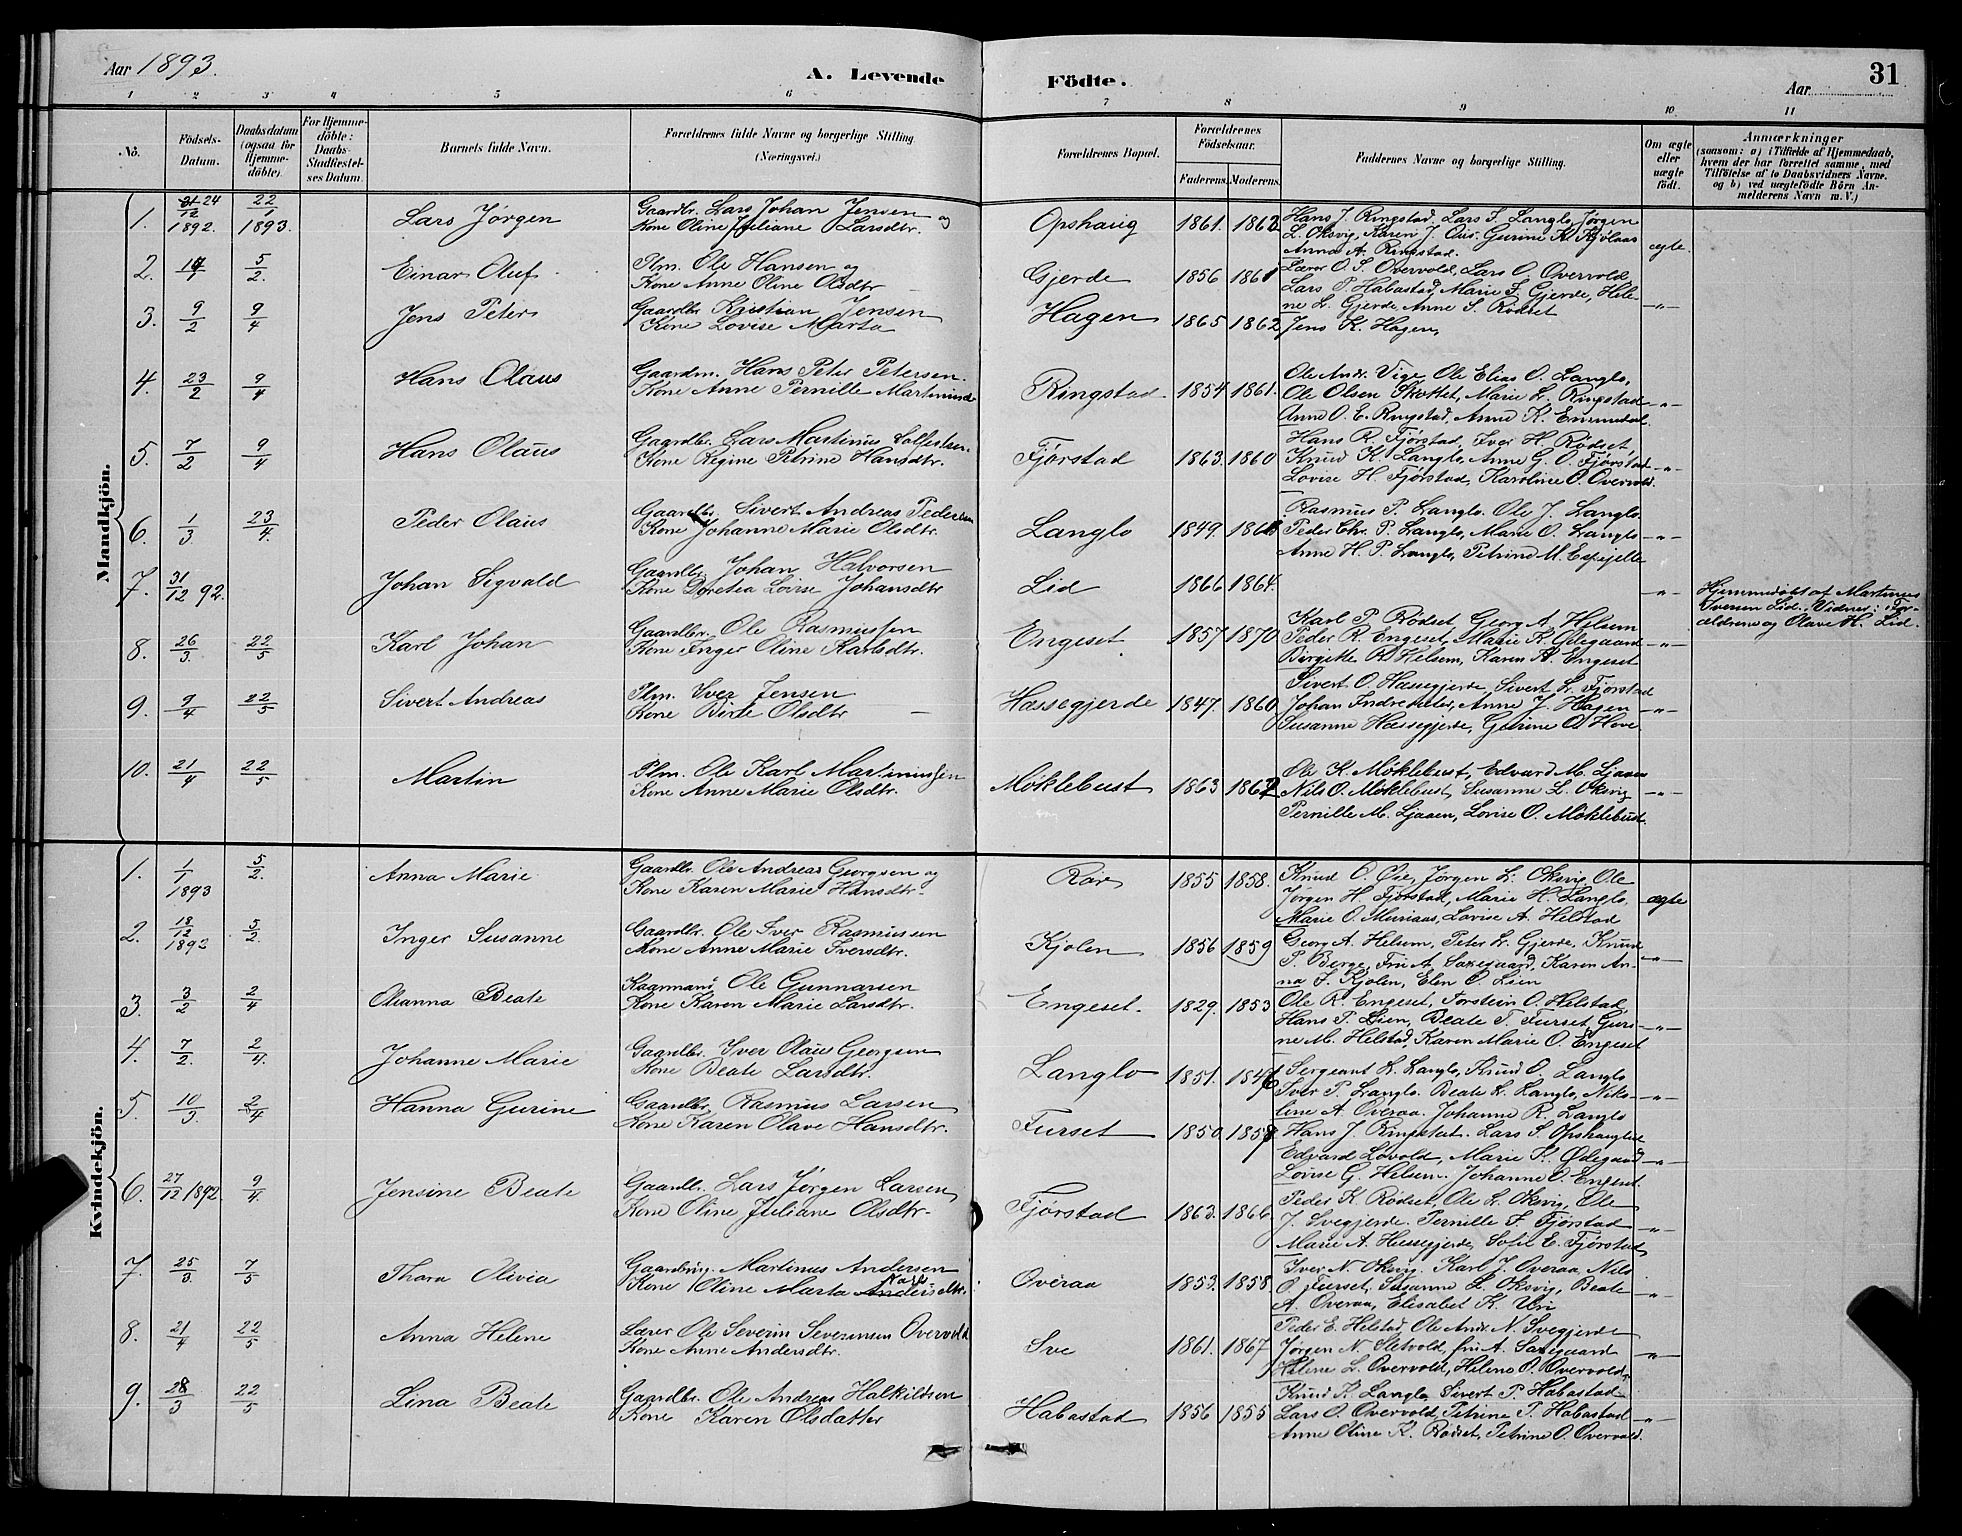 Aar 1893.
A. Levende
Födte.
31
Aar
1 2 3 4 5 6 7 8 9 10 11
No.
Födsels-Datum.
Daabsdatum (ogsaa for Hjemme-döbte).
For Hjemme-döbte: Daabs-Stadfæstelses Datum.
Barnets fulde Navn.
Forældrenes fulde Navne og borgerlige Stilling (Næringsvei.)
Forældrenes Bopæl.
Forældrenes Födselsaar.
Faderens. Moderens.
Faddernes Navne og borgerlige Stilling.
Om ægte eller uægte födt.
Anmærkninger
(saasom: a) i Tilfælde af Hjemmedaab,
hvem der har forrettet samme, med
Tilföielse af to Daabsvidners Navne.
og b) ved uægtefödte Börn An-
melderens Navn m. V.)
Mandkjön.
1. 24/12 1892. 22/1 1893. Lars Jørgen
Gaardbr. Lars Johan Jensen og
Kone Oline Juliane Larsdtr.
Opshaug 1861. 1862
Hans J. Ringstad. Lars S. Langlo, Jørgen
L. Oksvig, Karen J. Aus. Gurine K. Kjølaas
Anna A. Ringstad.
ægte.
2. 5/2. Einar Oluf
Plm. Ole Hansen og
Kone Anne Oline Olsdtr
Gjerde 1856 1861
Lærer O. S. Overvold, Lars O. Overvold,
Lars P. Habastad, Marie F. Gjerde, Hele-
ne L. Gjerde, Anne S. Rødset
-"-
3. 9/2 9/4 Jens Peter
Gaardbr Kristian Jensen
Kone Lovise Marta
Hagen 1865 1862
Jens K. Hagen,
4. 23/2 9/4 Hans Olaus
Gaardm. Hans Peter Petersen.
Kone Anne Pernille Martinusd
Ringstad 1854 1861.
Ole Andr. Vige, Ole Elias O. Langlo,
Ole Olsen Skottet, Marie L. Ringstad
Anne O. E. Ringstad, Anne K. Emmedal.
-"-
5. 7/2 9/4 Hans Olaus
Gaardbr. Lars Martinus
Kone Regine Petrine Hansdtr.
Fjørstad 1863. 1860
Hans R. Fjørstad, Iver H. Rødset,
Knud K. Langlo, Anne G. O. Fjørstad
Lovise H. Fjørstad, Karoline O. Overvold.
-"-
6. 1/3 23/4. Peder Olaus
Gaardbr. Sivert Andreas Pedersen
Kone Johanne Marie Olsdtr.
Langlo 1849.
Rasmus P. Langlo. Ole J. Langlo.
Peder Chr. P. Langlo, Marie O. Langlo
Anne H. P. Langlo, Petrine M. Espejelle
-"-
7. 31/12 92. Johan Sigvald
Gaardbr. Johan Halvorsen
Kone Dorthea Lovise Johansdtr
Lid 1866 1864.
-"-
Hjemmedøbt af Martinus
Iversen Lid. Vidner: For-
ældrene og Olave H. Lid.
8. 26/3. 22/5 Karl Johan
Gaardbr. Ole Rasmussen
Kone Inger Oline Karlsdtr.
Engeset 1857 1870
Karl P. Rødset Georg A. Helsem
Peder R. Engeset, Marie K. Ødegaard
Birgitte R. Helsem, Karen A. Engeset
-"-
9. 9/4 22/5 Sivert Andreas
Plm. Iver Jensen
Kone Birte Olsdtr
Hassegjerde 1847. 1860
Sivert O. Hassegjerde, Sivert L. Fjørstad
Johan Indresæter, Anne J. Hagen
Susanne Hassegjerde, Gurine O. Hove
-"-
10. 21/4 22/5 Martin
Plm. Ole Karl Martinussen
Kone Anne Marie Olsdtr.
Møklebust 1863 1862
Ole K. Møklebust, Edvard M. Ljaaen
Nils O. Møklebust, Susanne L. Oksvig
Pernille M. Ljaaen, Lovise O. Møklebust.
-"-
Kvindekjön.
1. 1/1 1893 5/2. Anna Marie
Gaardbr. Ole Andreas Georgsen og
Kone Karen Marie Hansdtr.
Rør 1855 1858.
Knud O. Øie, Jørgen L. Oksvig, Ole
Jørgen H. Fjørstad, Marie H. Langlo,
Marie O. Murraas, Lovise A. Helstad
ægte
2. 18/12 1893 5/2. Inger Susanne
Gaardbr. Ole Iver Rasmussen
Kone Anne Marie Iversdtr.
Kjølen 1856 1859
Georg A. Helsem, Peter L. Gjerde, Knud
P. Berge, Fru A. Saxegaard, Karen An-
na J. Kjølen, Elen O. Lien
-"-
3. 3/2 2/4 Olianna Beate
Kaarmand Ole Gunnarsen
Kone Karen Marie Larsdtr.
Engeset. 1829. 1853
Ole R. Engeset, Torstein O. Helstad,
Hans P. Lien, Beate T. Furset, Guri-
ne M. Helstad, Karen Marie O. Engeset
-"-
4. 7/2. 2/4. Johanne Marie
Gaardbr. Iver Olaus Georgsen
Kone Beate Larsdtr.
Langlo 1851. 1846
Sergeant L. Langlo, Knud O. Langlo
Iver P. Langlo. Beate L. Langlo, Niko-
line A. Overaa. Johanne R. Langlo
-"-
5. 10/3. 2/4 Hanna Gurine
Gaardbr. Rasmus Larsen
Kone Karen Olave Hansdtr.
Furset 1850
Hans J. Ringstad. Lars S. Opshaug
Edvard Løvold, Marie K. Ødegaard
Lovise G. Helsem. Johanne O. Engeset.
-"-
6. 27/12 1892. 9/4. Jensine Beate
Gaardbr. Lars Jørgen Larsen
Kone Oline Juliane Olsdtr-
Fjørstad 1863. 1866
Peder K. Rødset, Ole L. Oksvig, Ole
J. Svegjerde. Pernille F. Fjørstad
Marie A. Hessegjerde, Sofie E. Fjørstad
-"-
7. 25/3. 7/5 Thora Olivia
Gaardbrug. Martinus Andersen
Kone Oline Marta
Overaa 1853. 1858.
Iver N. Oksvig. Karl J. Overaa, Nils
O. Furset, Susanne L. Oksvig, Beate
A. Overaa, Elisabet K. Uri
-"-
8. 21/4 22/5 Anna Helene
Lærer Ole Severin Severinsen Overvold
Kone Anne Andersdtr.
Sve 1861. 1867
Peder E. Helstad, Ole Andr. N. Svegjerde
Jørgen N. Sletvold, fru A. Saxegaard
Helene L. Overvold, Helene O. Overvold.
-"-
9. 28/3 22/5 Lina Beate
Gaardbr. Ole Andreas Halkildsen
Kone Karen Olsdatter
Habastad 1856 1855
Knud K. Langlo, Sivert P. Habastad
Lars O. Overvold, Petrine P. Habastad
Anne Oline K. Rødset, Petrine O. Overvold.
-"-